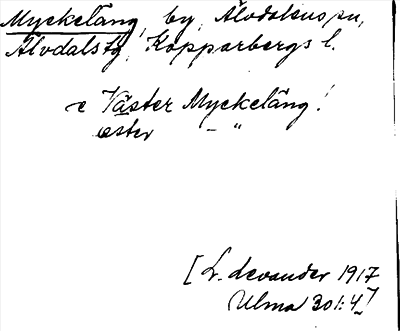 Myckeläng, by, Älvdalens sn,
Älvdals tg, Kopparbergs l.
~ Väster Myckeläng!
öster — " —
[L. Levander 1917
Ulma 301:4]